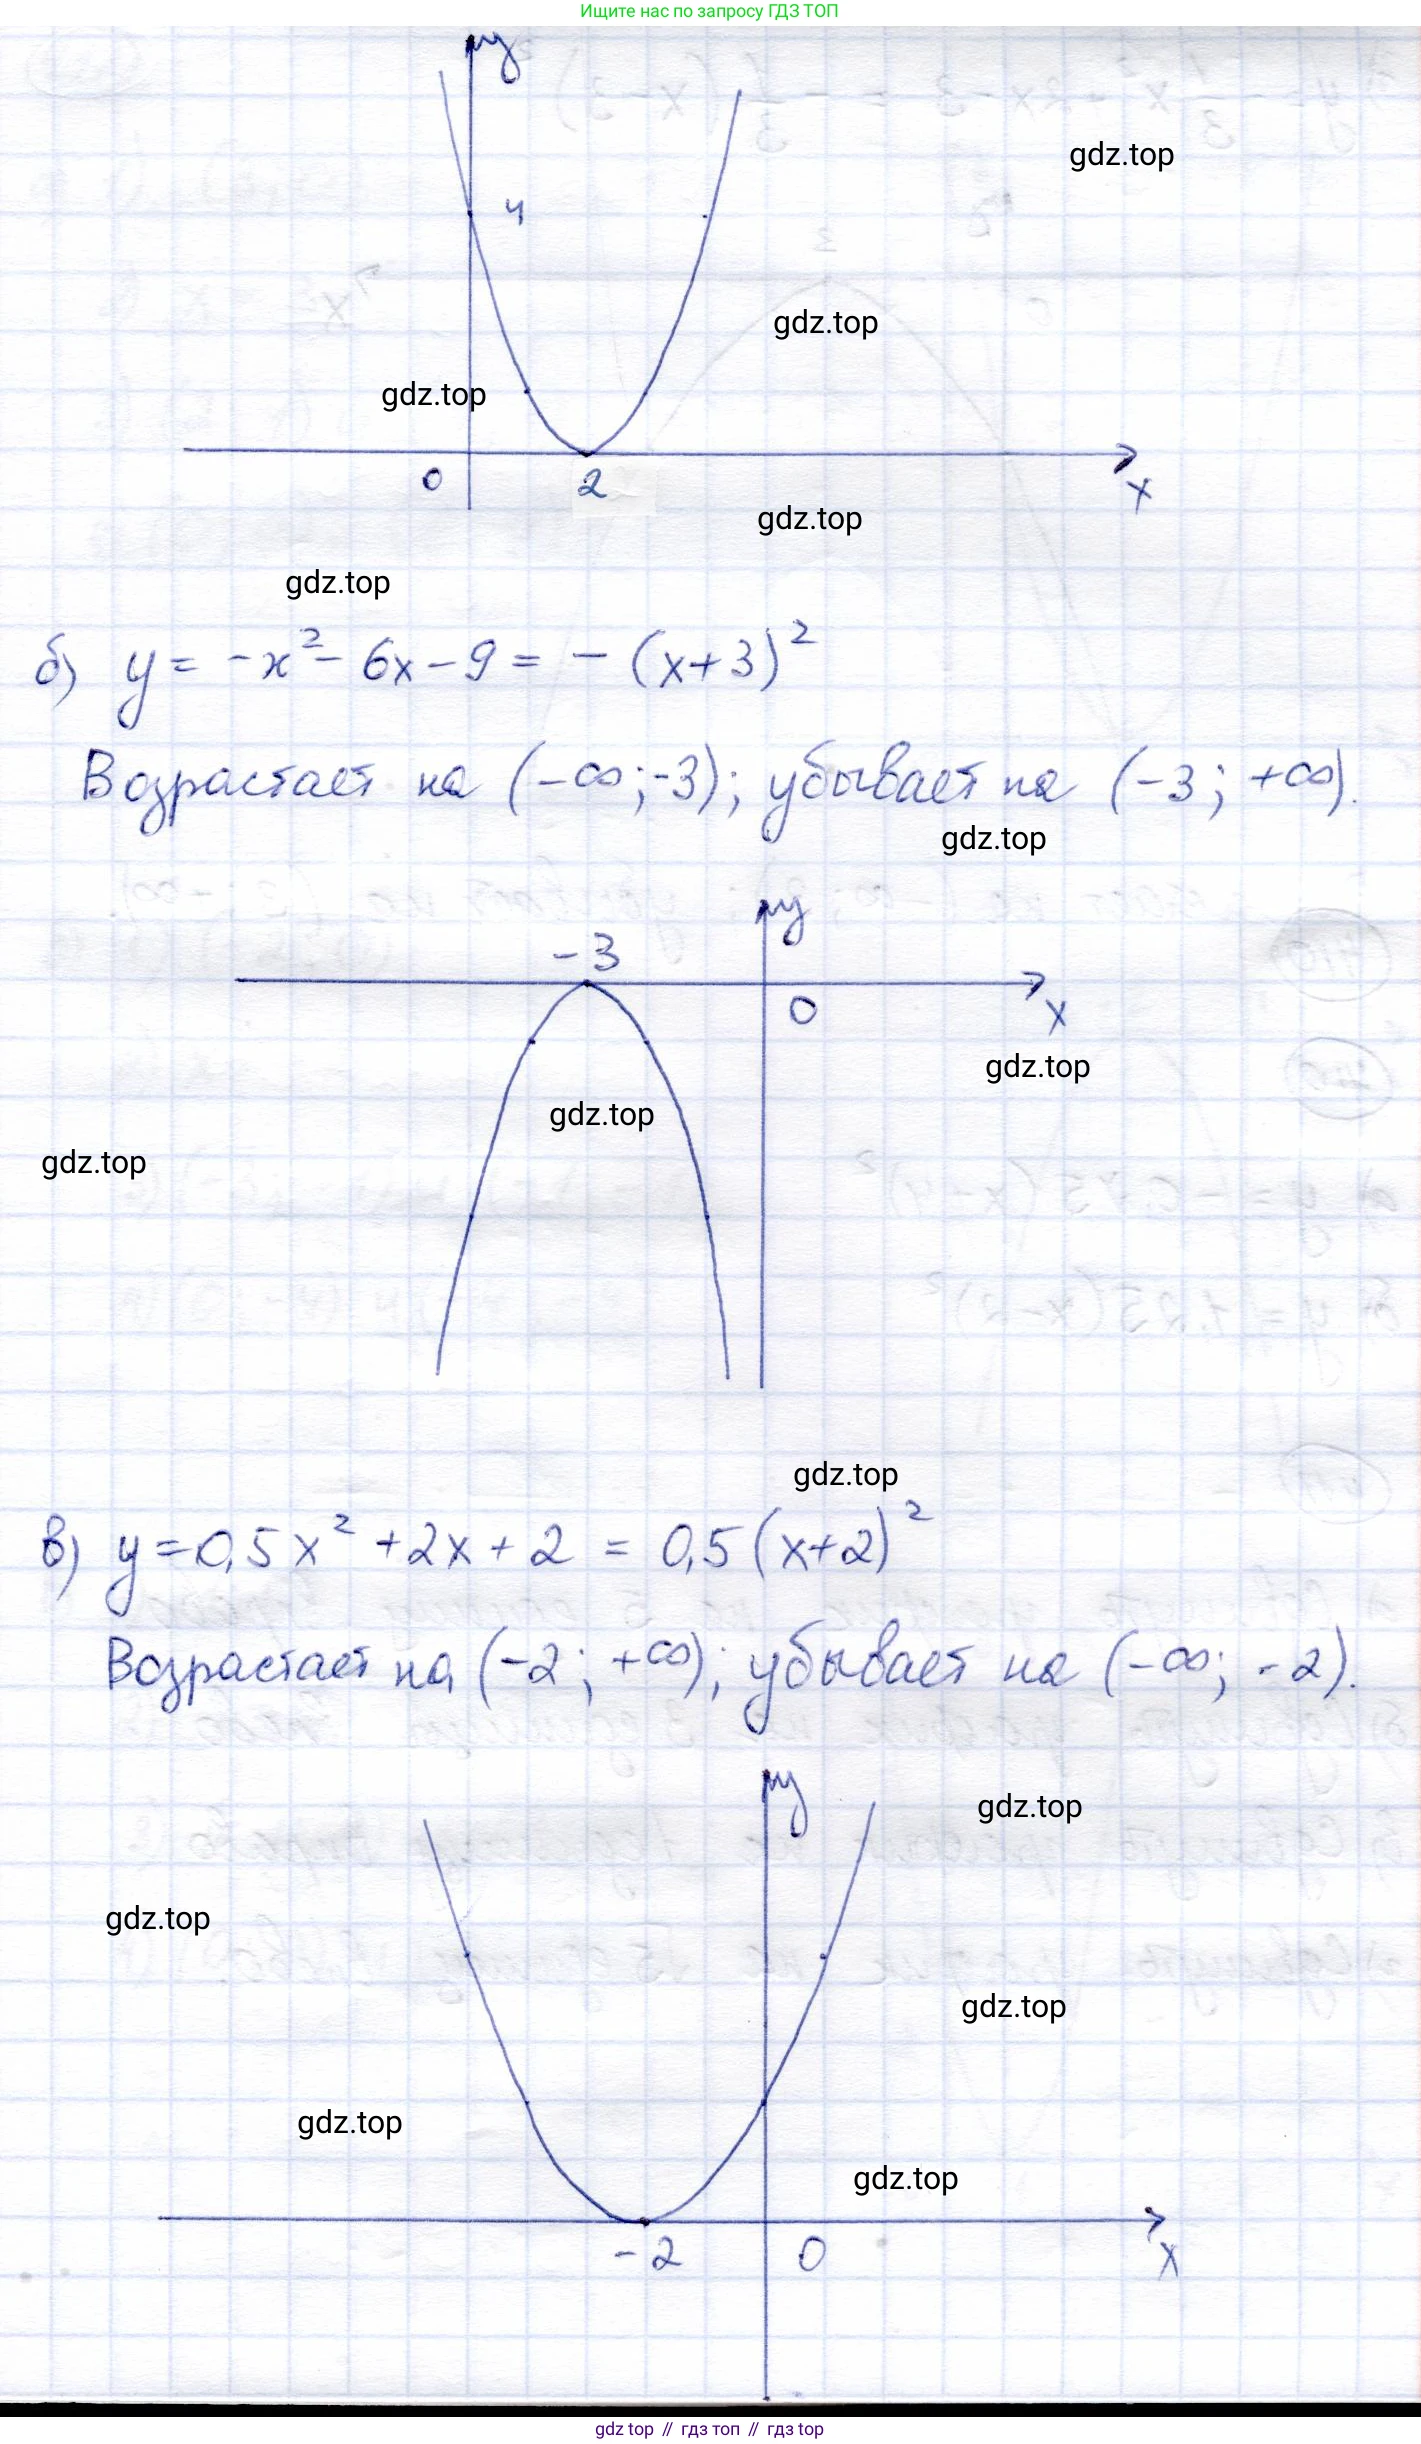 Ищите нас по запросу ГДЗ ТОП
y
gdz.top
4
gdz.top
gdz.top
0
2
x
gdz.top
gdz.top
б) y = -x² - 6x - 9 = - (x+3)²
Возрастает на (-∞; -3); убывает на (-3; +∞).
gdz.top
y
-3
0
x
gdz.top
gdz.top
gdz.top
gdz.top
в) y = 0,5x² + 2x + 2 = 0,5(x+2)²
Возрастает на (-2; +∞); убывает на (-∞; -2).
y
gdz.top
gdz.top
gdz.top
gdz.top
gdz.top
-2
0
x
gdz top // гдз топ // гдз top